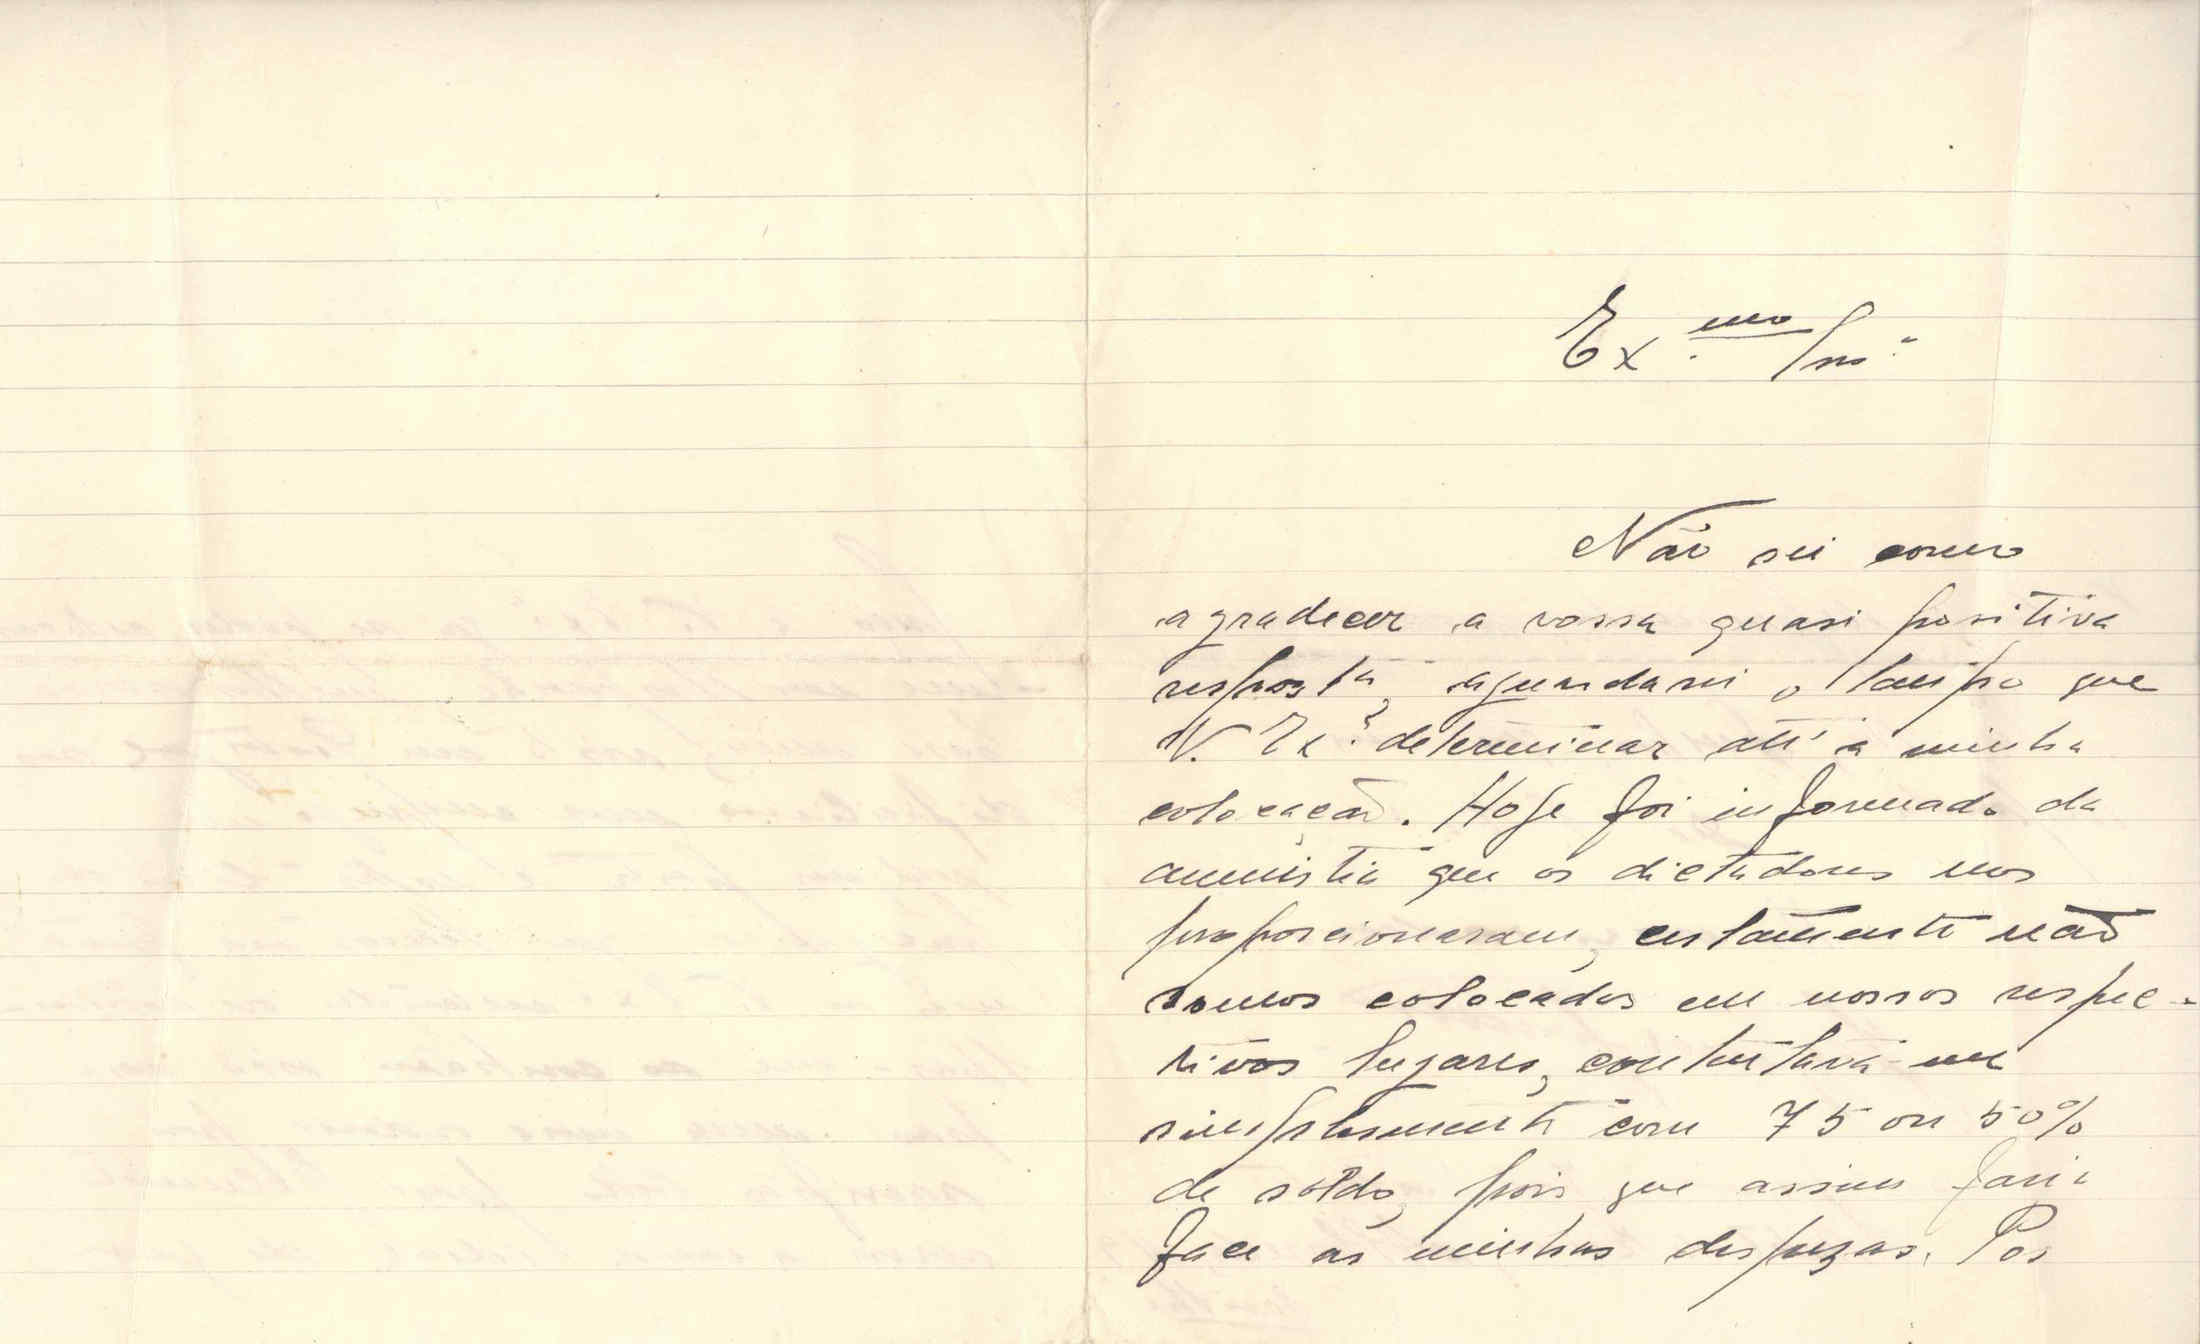 Ex.mo Snr.
Não sei como
agradecer a vossa quasi positiva
resposta, aguardarei o tempo que
V. Ex.ª determinar até á minha
colocação. Hoje foi informado da
amnistia que os dictadores nos
proporcionaram, certamente não
somos colocados em nossos respec-
tivos lugares, contentava-me
simplesmente com 75 ou 50%
de soldo, pois que assim faria
face ás minhas despezas. Pos